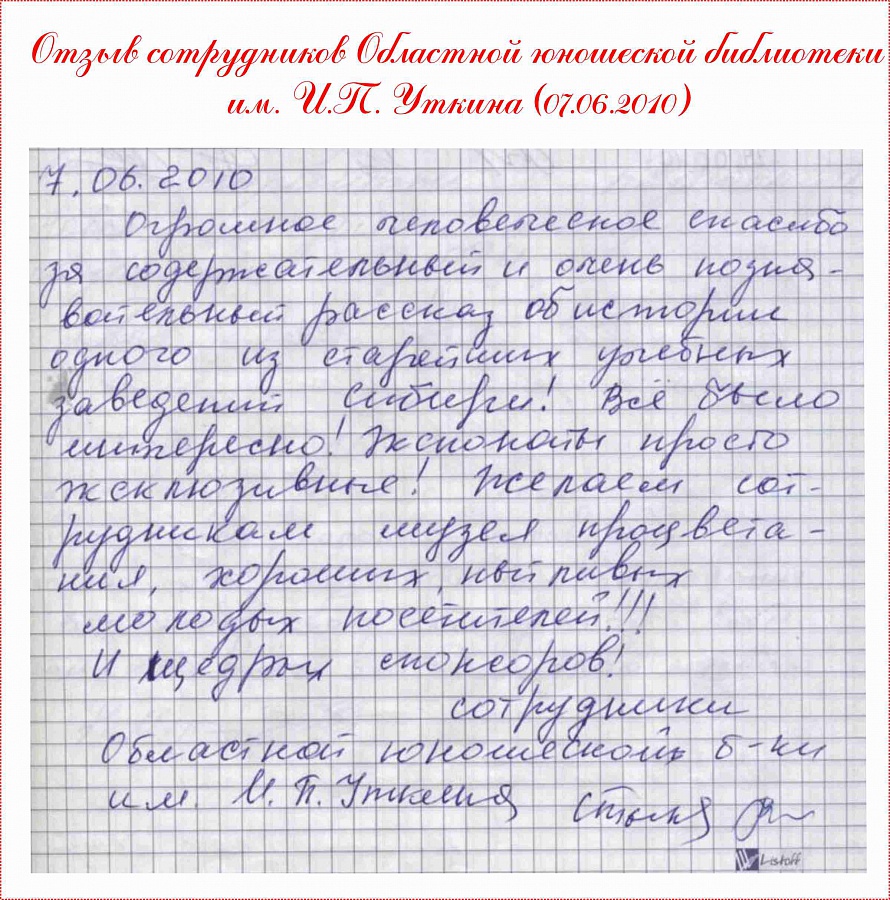 Отзыв сотрудников Областной юношеской библиотеки
им. И.П. Уткина (07.06.2010)
7.06.2010
Огромное человеческое спасибо
за содержательный и очень позна-
вательный рассказ об истории
одного из старейших учебных
заведений Сибири! Всё было
интересно! Экспонаты просто
эксклюзивные! Желаем сот-
рудникам музея процвета-
ния, хороших, пытливых
молодых посетителей!!!
И щедрых спонсоров!
сотрудники
Областной юношеской б-ки
им. И.П. Уткина
Listoff